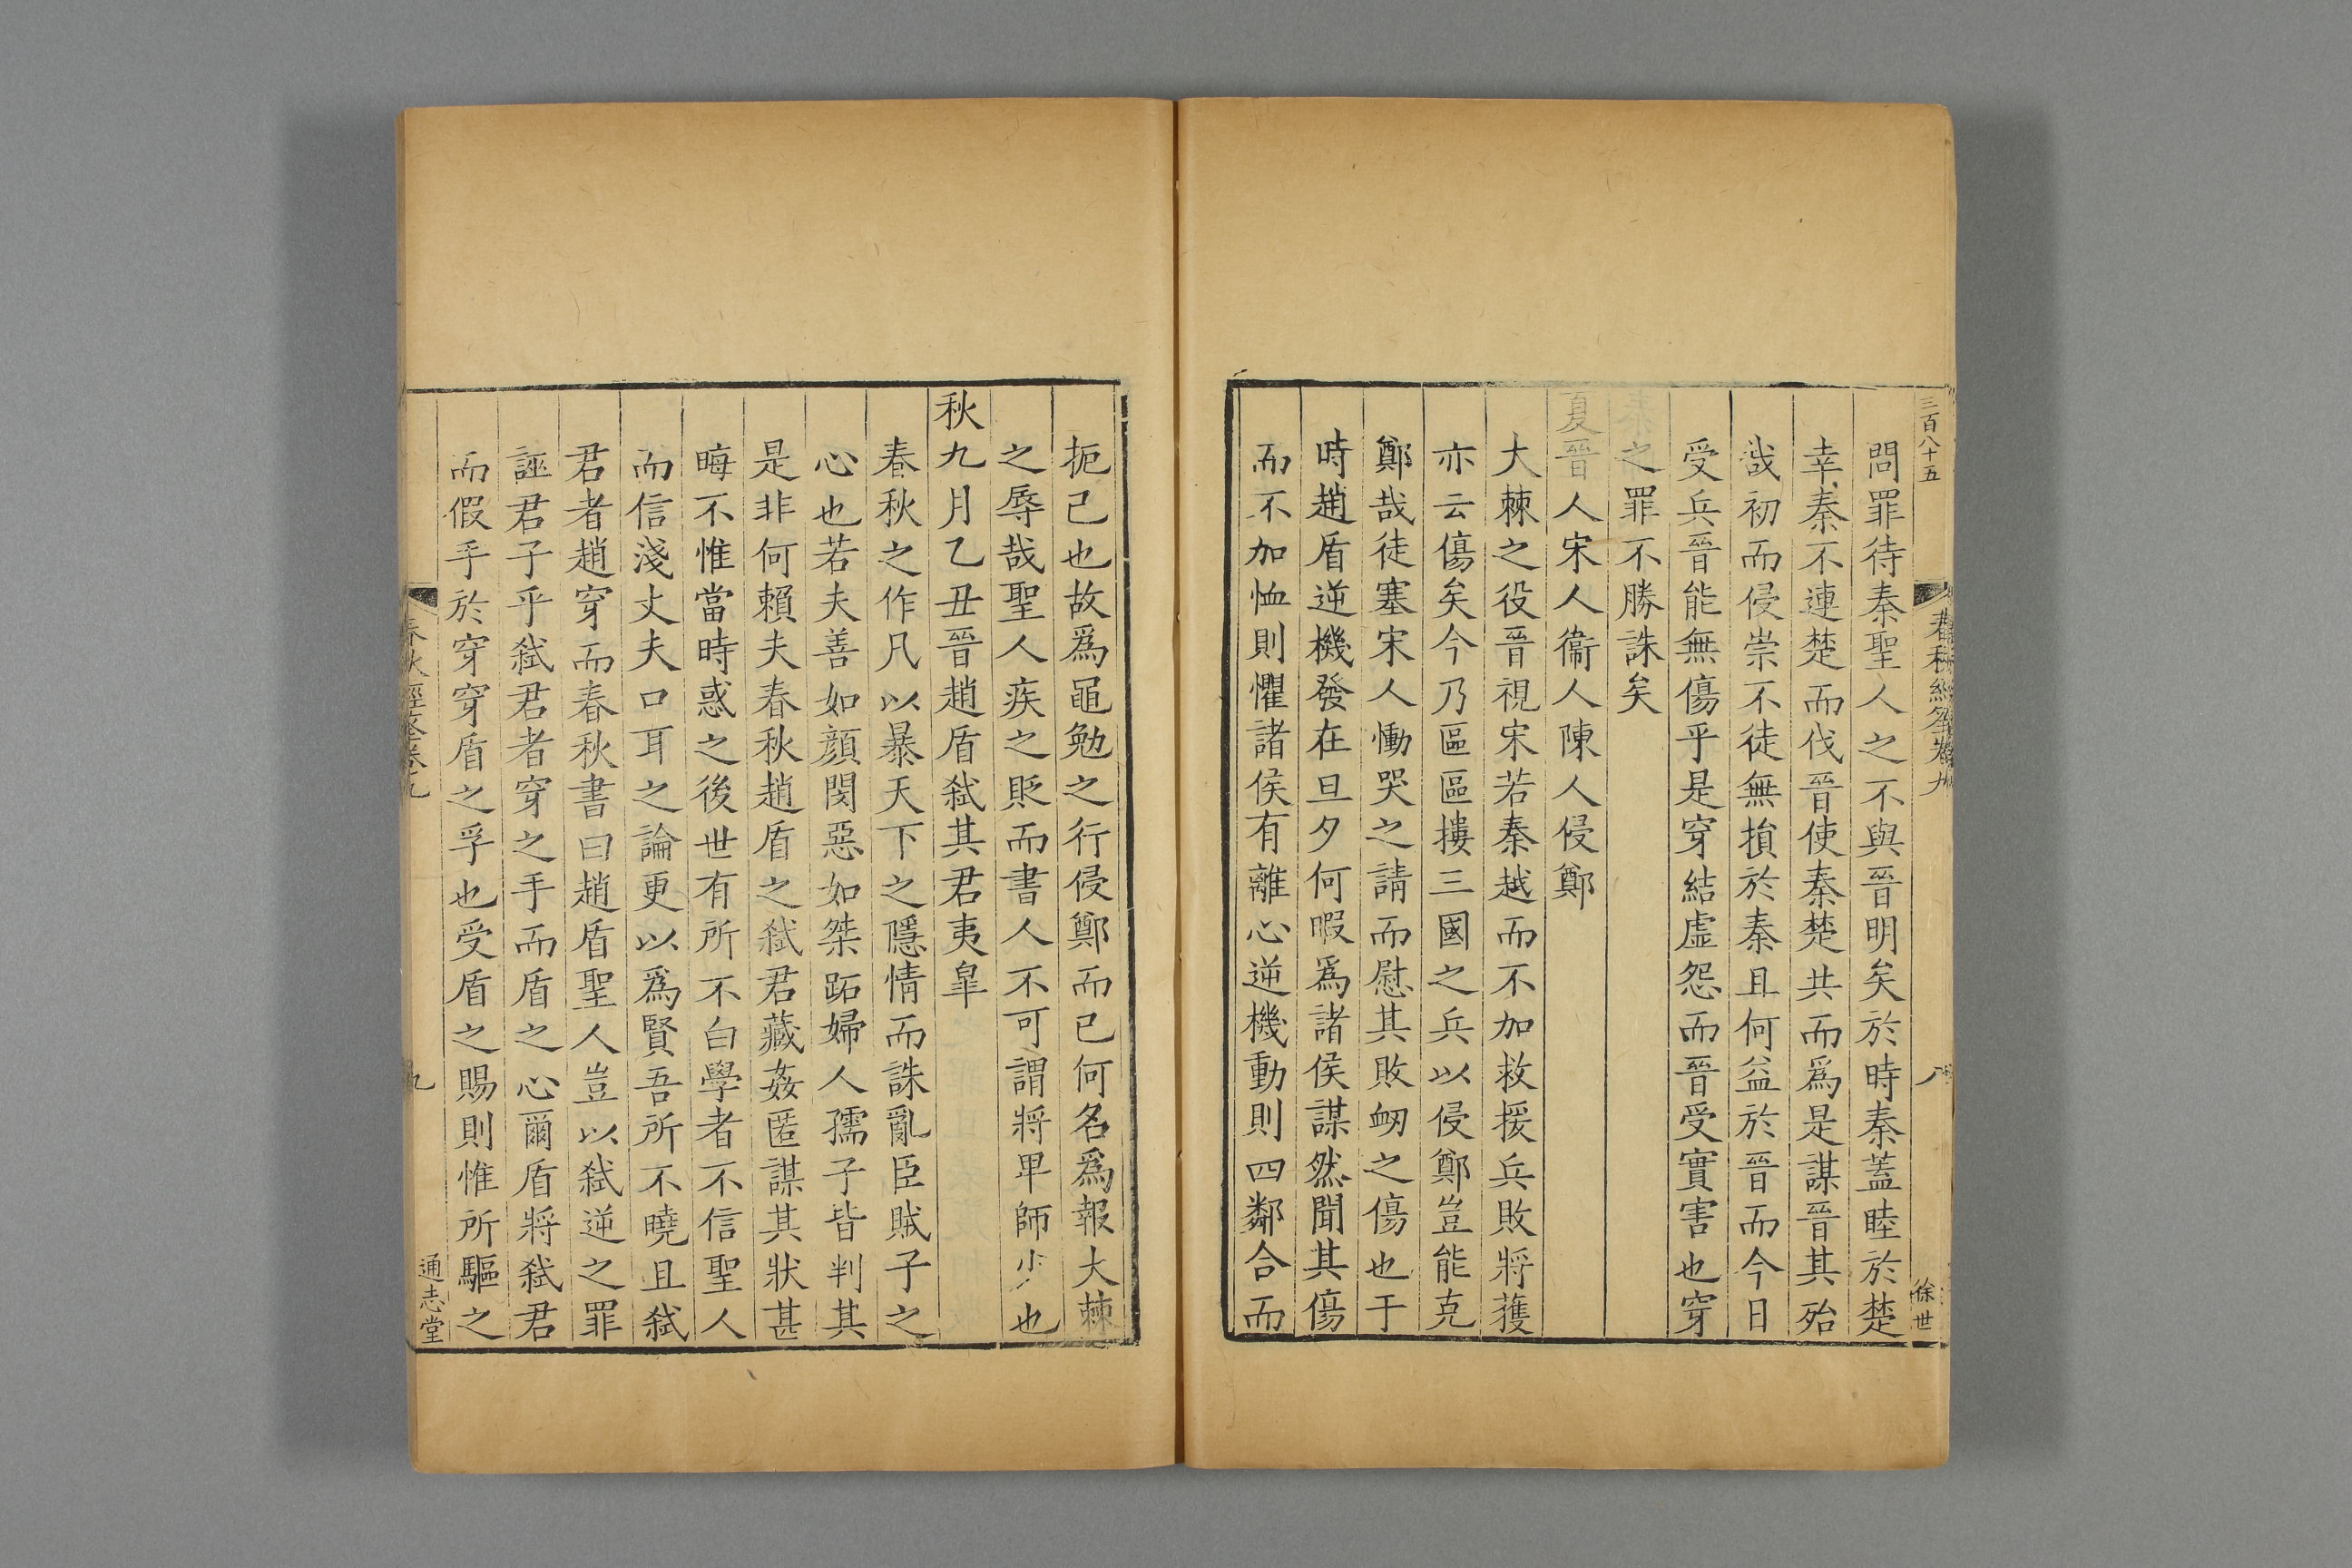 三百八十五
春秋經筌卷九
八
徐世
問罪待秦聖人之不與晉明矣於時秦蓋睦於楚
幸秦不連楚而伐晉使秦楚共而爲是謀晉其殆
哉初而侵崇不徒無損於秦且何益於晉而今日
受兵晉能無傷乎是穿結虛怨而晉受實害也穿
之罪不勝誅矣
夏晉人宋人衞人陳人侵鄭
大棘之役晉視宋若秦越而不加救援兵敗將獲
亦云傷矣今乃區區摟三國之兵以侵鄭豈能克
鄭哉徒塞宋人慟哭之請而慰其敗衂之傷也于
時趙盾逆機發在旦夕何暇爲諸侯謀然聞其傷
而不加恤則懼諸侯有離心逆機動則四鄰合而
扼己也故爲黽勉之行侵鄭而已何名爲報大棘
之辱哉聖人疾之貶而書人不可謂將卑師少也
秋九月乙丑晉趙盾弑其君夷皐
春秋之作凡以暴天下之隱情而誅亂臣賊子之
心也若夫善如顔閔惡如桀跖婦人孺子皆判其
是非何賴夫春秋趙盾之弑君藏姦匿謀其狀甚
晦不惟當時惑之後世有所不白學者不信聖人
而信淺丈夫口耳之論更以爲賢吾所不曉且弑
君者趙穿而春秋書曰趙盾聖人豈以弑逆之罪
誣君子乎弑君者穿之手而盾之心爾盾將弑君
而假手於穿穿盾之孚也受盾之賜則惟所驅之
春秋經筌卷九
九
通志堂